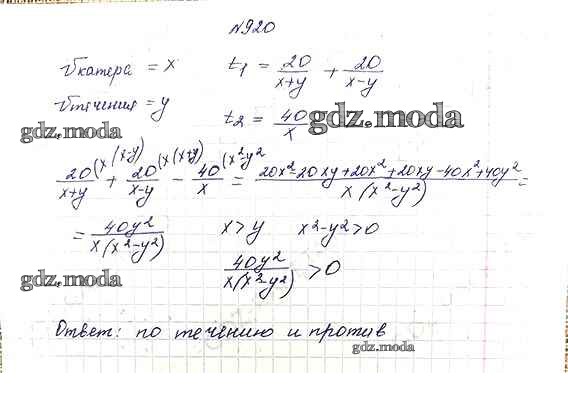 №920
vкатера = x    t₁ = 20/(x+y) + 20/(x-y)
vтечения = y    t₂ = 40/x
gdz.moda
gdz.moda
20/(x+y) (x(x-y) + 20/(x-y) (x(x+y) - 40/x (x²-y² = (20x²-20xy+20x²+20xy-40x²+40y²)/(x(x²-y²)) =
= 40y²/(x(x²-y²))    x>y    x²-y²>0
gdz.moda
40y²/(x(x²-y²)) >0
Ответ: по течению и против
gdz.moda